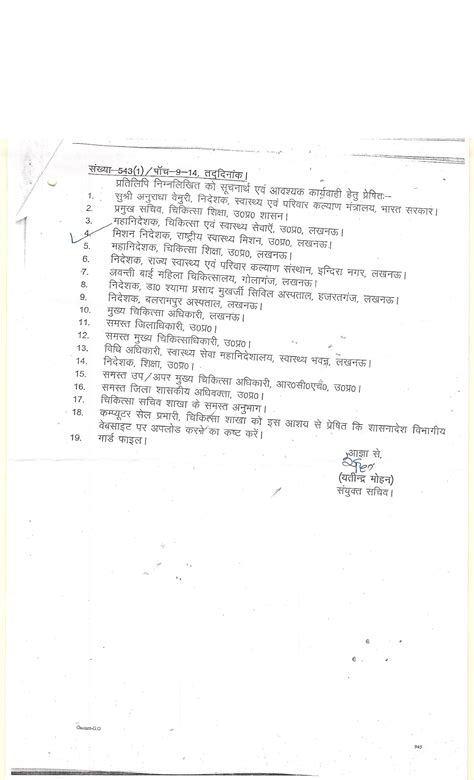 संख्या-543(1)/पॉच-9-14, तद्दिनांक।
प्रतिलिपि निम्नलिखित को सूचनार्थ एवं आवश्यक कार्यवाही हेतु प्रेषितः-
1. सुश्री अनुराधा वेमुरी, निदेशक, स्वास्थ्य एवं परिवार कल्याण मंत्रालय, भारत सरकार।
2. प्रमुख सचिव, चिकित्सा शिक्षा, उ०प्र० शासन।
3. महानिदेशक, चिकित्सा एवं स्वास्थ्य सेवाऐं, उ०प्र०, लखनऊ।
4. मिशन निदेशक, राष्ट्रीय स्वास्थ्य मिशन, उ०प्र०, लखनऊ।
5. महानिदेशक, चिकित्सा शिक्षा, उ०प्र०, लखनऊ।
6. निदेशक, राज्य स्वास्थ्य एवं परिवार कल्याण संस्थान, इन्दिरा नगर, लखनऊ।
7. अवन्ती बाई महिला चिकित्सालय, गोलागंज, लखनऊ।
8. निदेशक, डा० श्यामा प्रसाद मुखर्जी सिविल अस्पताल, हजरतगंज, लखनऊ।
9. निदेशक, बलरामपुर अस्पताल, लखनऊ।
10. मुख्य चिकित्सा अधिकारी, लखनऊ।
11. समस्त जिलाधिकारी, उ०प्र०।
12. समस्त मुख्य चिकित्साधिकारी, उ०प्र०।
13. विधि अधिकारी, स्वास्थ्य सेवा महानिदेशालय, स्वास्थ्य भवन, लखनऊ।
14. निदेशक, शिक्षा, उ०प्र०।
15. समस्त उप/अपर मुख्य चिकित्सा अधिकारी, आर०सी०एच०, उ०प्र०।
16. समस्त जिला शासकीय अधिवक्ता, उ०प्र०।
17. चिकित्सा सचिव शाखा के समस्त अनुभाग।
18. कम्प्यूटर सेल प्रभारी, चिकित्सा शाखा को इस आशय से प्रेषित कि शासनादेश विभागीय
वेबसाइट पर अपलोड करने का कष्ट करें।
19. गार्ड फाइल।
आज्ञा से,
(यतीन्द्र मोहन)
संयुक्त सचिव।
945